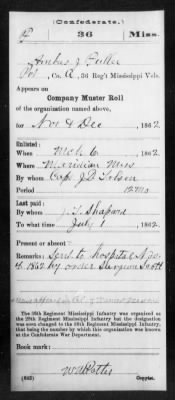 (Confederate.)
36 Miss.
Pvt, Co. A, 36 Reg't Mississippi Vols.
Appears on
Company Muster Roll
of the organization named above,
for Nov & Dec, 1862.
Enlisted:
When Mch 6, 1862.
Where Meridian Miss
By whom Capt J.D.
Period 12 Mo
Last paid:
By whom J.T.
To what time July 1, 1862.
Present or absent
Remarks: Sent to Hospital Nov
4, 1862 by order Surgeon Scott
The 36th Regiment Mississippi Infantry was organized as
the 29th Regiment Mississippi Infantry but the designation
was soon changed to the 36th Regiment Mississippi Infantry,
that being the number by which this organization was known
at the Confederate War Department.
Book mark:
(642) Copyist.